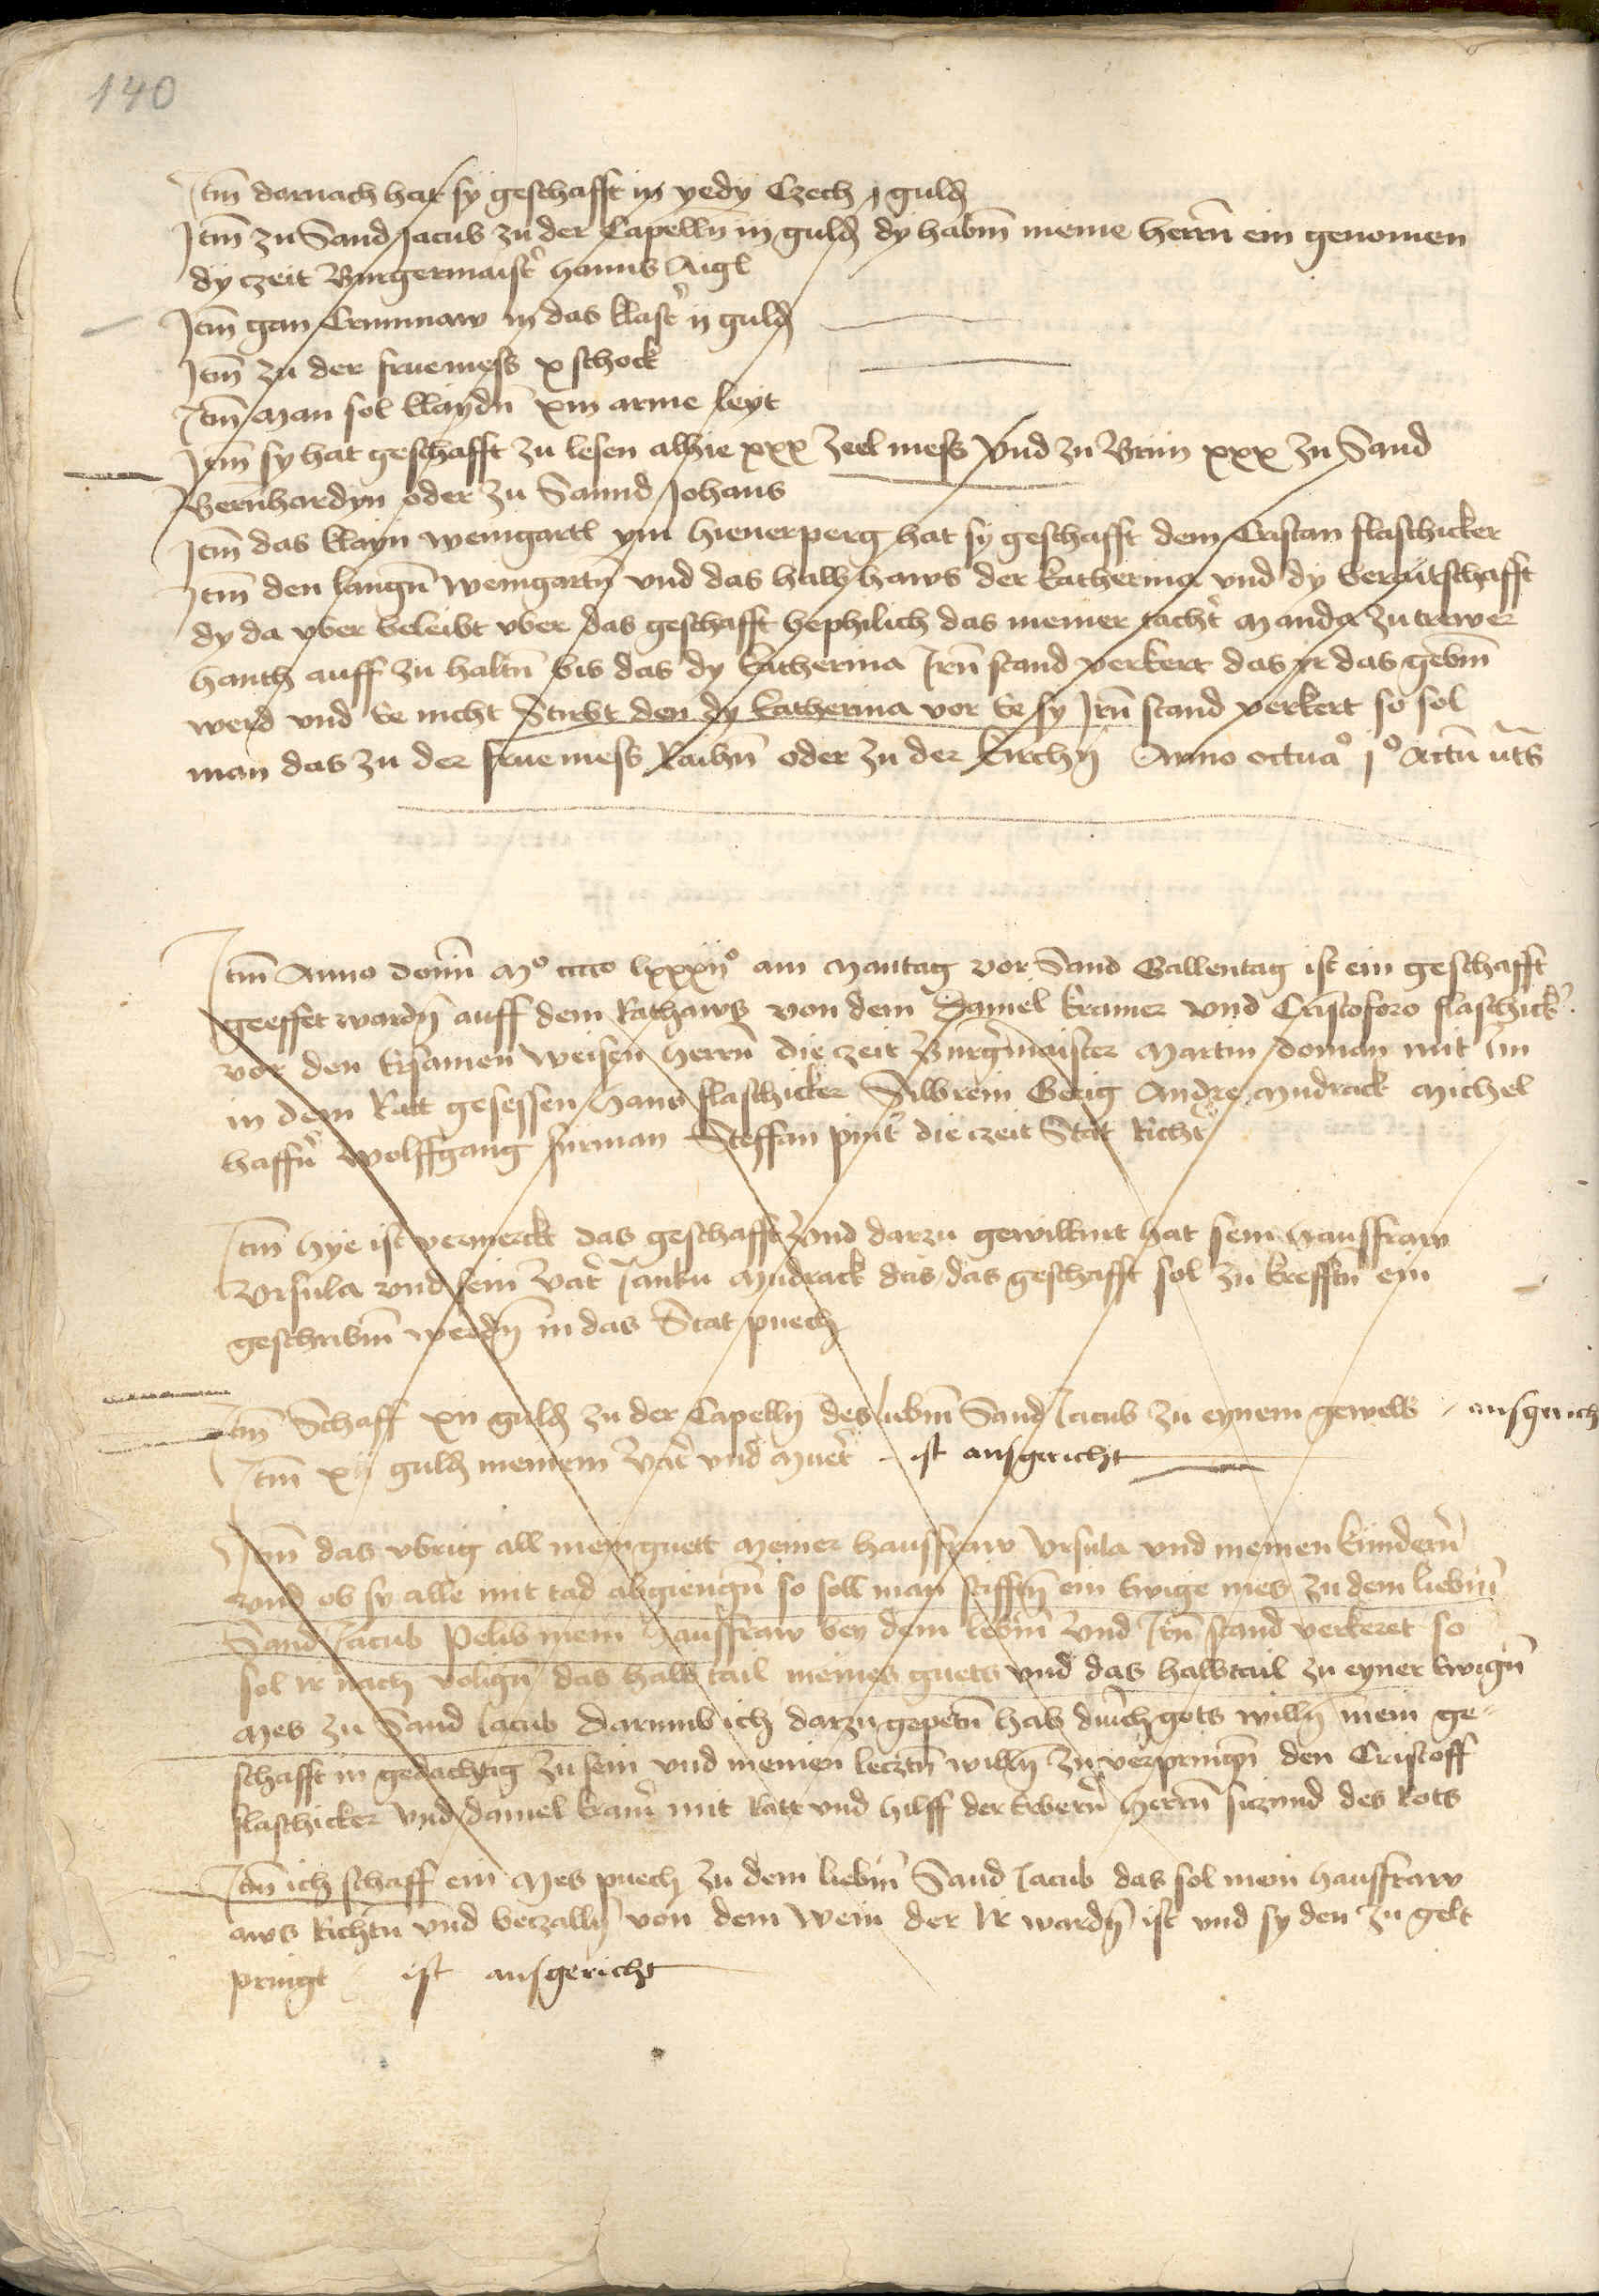 140
Itm̄ darnach hat sy geschafft in yedy Czech j guld
Itm̄ zu Sand Jacub zu der Capelln̄ iij guld dy habm̄ meine herrn̄ ein genomen
dy czeit Burgermaist̾ hanns Aigl
Itm̄ gan Crumnaw in das klast̾ ij guld
Itm̄ zu der fruemess x schock
Itm̄ man sol klaydn̄ xiii arme leyt
Itm̄ sy hat geschafft zu lesen alhie xxx zeel mess vnd zu Brun xxx zu Sand
Bernhardyn oder zu Sannd Johans
Itm̄ das klayn weingartl ym hienerperg hat sy geschafft dem Cristan flaschicker
Itm̄ den langn̄ weingartn̄ vnd das halb haws der katherina vnd dy beraitschafft
dy da vber beleibt vber das geschafft das meiner tacht̾ zu trewer
hanth auff zu haltn̄ bis das dy katherina Irn̄ stand verkert das yr das gebm̄
werd vnd ee nicht Stirbt den dy katherina vor ee sy Irn̄ stand verkert so sol
man das zu der fruemess Raihn̄ oder zu der kirchn̄ Anno octuaͦ jͦ Actū ut s
Itm̄ Anno domī Mͦ cccco lxxxijͦ am mantag vor Sand Gallentag ist ein geschafft
geeffet wardn̄ auff dem Rathaws von dem Daniel kramer vnd Cristoforo flaschick̾
vor den Ersamen weisen herrn̄ die czeit Burg̾maister Martin doman mit Im
in dem Ratt gesessen hans flaschicker Silbrein Gerig Andre Mudrack Michel
haffn̾ wolffgang furman Steffan pint̾ die czeit Stat Richt̾
Itm̄ hye ist vermerckt das geschafft vnd darzu gewillmt hat sein hausfraw
Vrsula vnd sein vat̾ Janku Mudrack das das geschafft sol zu krefftn̄ ein
geschribm̄ werdn̄ in das Stat puech
Itm̄ Schaff xii guld zu der Capelln̄ des liebm̄ Sand Jacub zu eynem gewelb ausgerich
Itm̄ xij guld meinem vat̾ vnd muet̾ ist ausgericht
Itm̄ das vbrig all mein guett meiner hausfraw Vrsula vnd meinen kindern̾
vnd ob sy alle mit tad abgiengn̄ so soll man stifftn̄ ein Ewige mes zu dem liebm̄
Sand Jacub Pelib mein hausfraw bey dem lebm̄ vnd Irn̄ stand verkeret so
sol Ir nach volign̄ das halb tail meines guets vnd das halbtail zu eyner Ewign̄
mes zu Sand Jacub Darumb ich darzu gepetn̄ hab durch gots willn̄ mein ge-
schafft in gedachtig zu sein vnd meinen lecztn̄ willn̄ zu verpringn̄ den Cristoff
flaschicker vnd daniel kram̾ mit Ratt vnd hilff der Erbern̄ herrn̄ siczund des Rots
Itm̄ ich schaff ein Mes puech zu dem liebm̄ Sand Jacub das sol mein hausfraw
aws Richtn̄ vnd beczalln̄ von dem wein der Ir wardn̄ ist vnd sy den zu gelt
pringt ist ausgericht